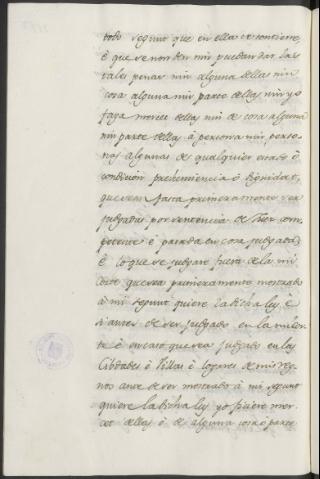 todo segunt que en ella se contiene,
é que se non den nin puedan dar las
tales penas nin alguna dellas nin
cosa alguna nin parte dellas nin yo
faga merced dellas nin de cosa alguna
nin parte dellas á persona nin perso-
nas algunas de qualquier estado ó
condición preheminencia ó dignidat,
que sean fasta primeramente ser
judgadas por sentencia de Juez com-
petente é pasada en cosa judgada;
é lo que se judgare fuera de la mi
Corte que sea primeramente mostrado
á mi segunt quiere la dicha ley, é
si antes de ser judgado en la mi Cor-
te é en caso que sea judgado en las
Cibdades é Villas é logares de mis reg-
nos ante de ser mostrado á mi segunt
quiere la dicha ley yo ficiere mer-
cet dellas ó de alguna cosa ó parte